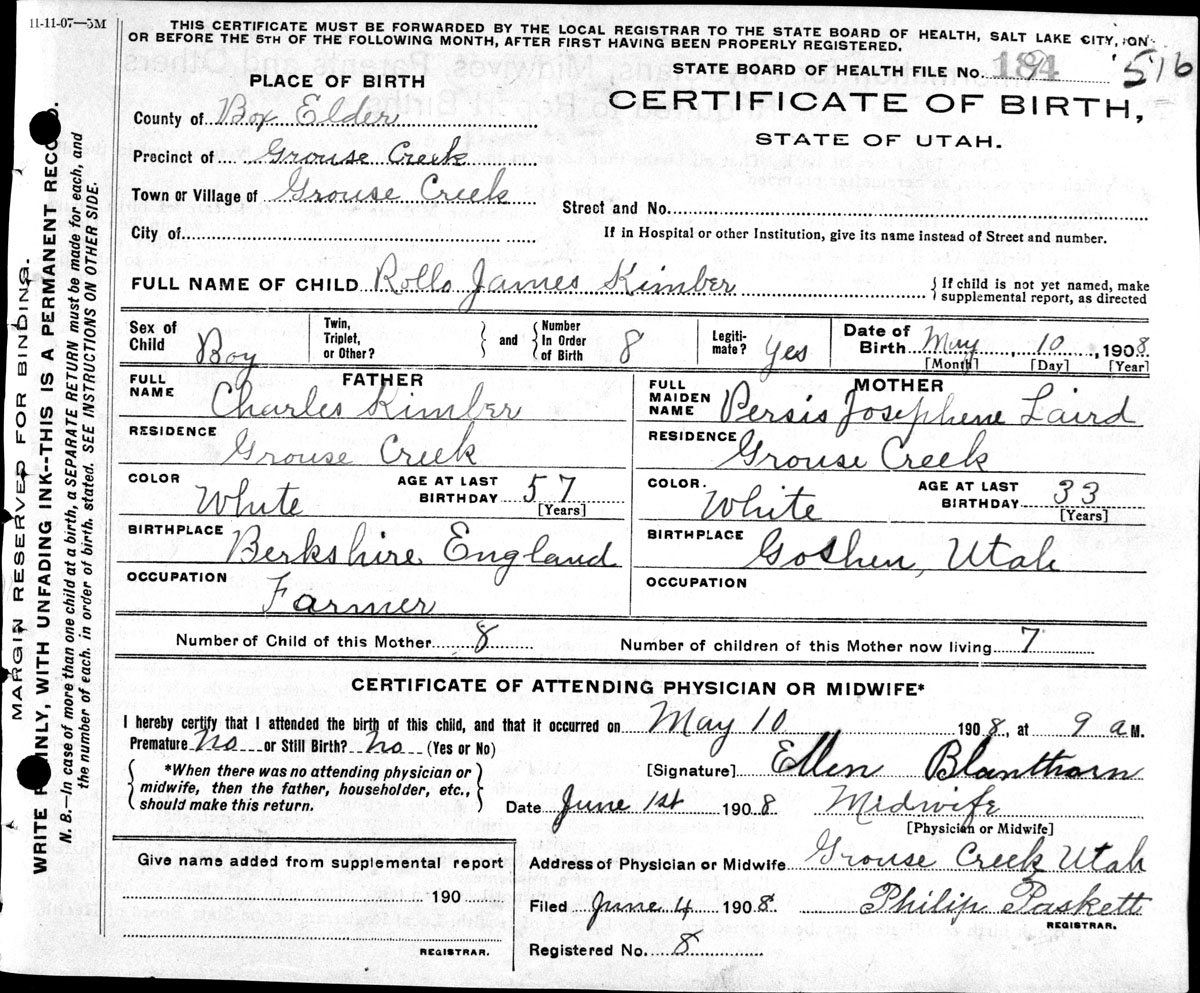 11-11-07—5M
THIS CERTIFICATE MUST BE FORWARDED BY THE LOCAL REGISTRAR TO THE STATE BOARD OF HEALTH, SALT LAKE CITY, ON
OR BEFORE THE 5TH OF THE FOLLOWING MONTH, AFTER FIRST HAVING BEEN PROPERLY REGISTERED.
STATE BOARD OF HEALTH FILE No. 516
CERTIFICATE OF BIRTH,
STATE OF UTAH.
PLACE OF BIRTH
County of Box Elder
Precinct of Grouse Creek
Town or Village of Grouse Creek
Street and No.
City of
If in Hospital or other Institution, give its name instead of Street and number.
FULL NAME OF CHILD Rollo James Kimber
{ If child is not yet named, make
supplemental report, as directed
Sex of Child Boy
Twin, Triplet, or Other? } and { Number In Order of Birth 8
Legiti-mate? Yes
Date of Birth May, 10, 1908.
[Month] [Day] [Year]
FATHER
FULL NAME Charles Kimber
RESIDENCE Grouse Creek
COLOR White AGE AT LAST BIRTHDAY 57
[Years]
BIRTHPLACE Berkshire England
OCCUPATION Farmer
MOTHER
FULL MAIDEN NAME Persis Josephene Laird
RESIDENCE Grouse Creek
COLOR. White AGE AT LAST BIRTHDAY 33
[Years]
BIRTHPLACE Goshen, Utah
OCCUPATION
Number of Child of this Mother 8 Number of children of this Mother now living 7
CERTIFICATE OF ATTENDING PHYSICIAN OR MIDWIFE*
I hereby certify that I attended the birth of this child, and that it occurred on May 10 1908, at 9 a M.
Premature No or Still Birth? No (Yes or No)
{ *When there was no attending physician or
midwife, then the father, householder, etc.,
should make this return. }
[Signature] Ellen Blanthorn
Date June 1st 1908 Midwife
[Physician or Midwife]
Give name added from supplemental report
190
REGISTRAR.
Address of Physician or Midwife Grouse Creek Utah
Filed June 4 1908. Philip Paskett
REGISTRAR.
Registered No. 8
MARGIN RESERVED FOR BINDING.
WRITE PLAINLY, WITH UNFADING INK--THIS IS A PERMANENT RECORD.
N. B.—In case of more than one child at a birth, a SEPARATE RETURN must be made for each, and
the number of each, in order of birth, stated. SEE INSTRUCTIONS ON OTHER SIDE.